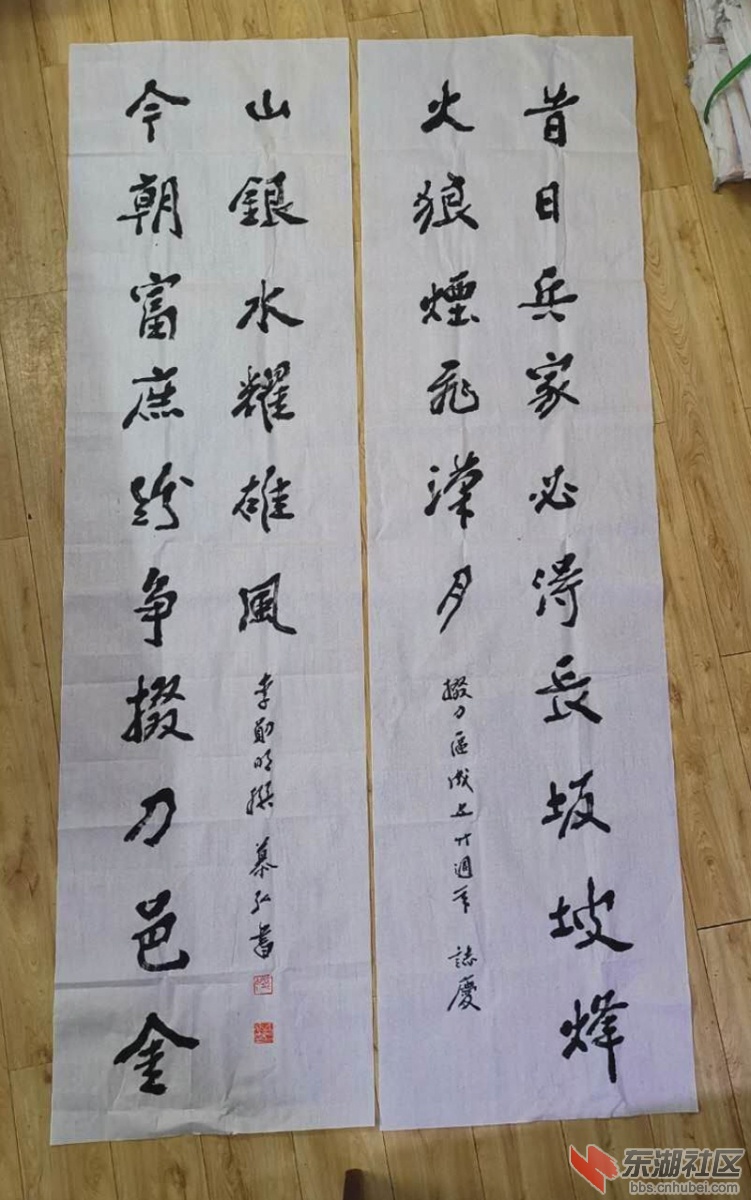 昔日兵家必得長坂坡烽
火狼煙飛漢月
掇刀區成立廿週年 誌慶
今朝富庶紛争掇刀邑金
山銀水耀雄風
李明撰 慕弘書
东湖社区
bbs.cnhubei.com